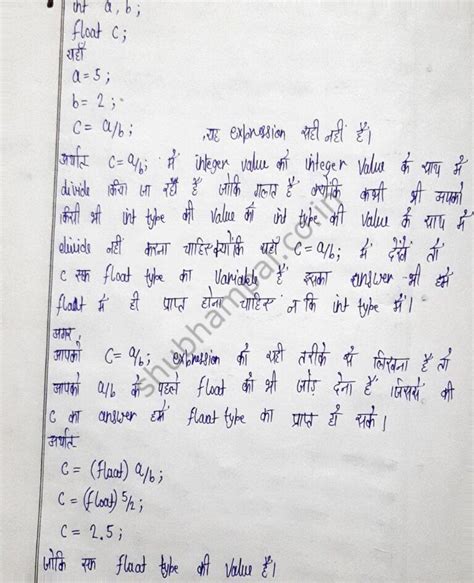 int a, b;
float c;
यहाँ
a = 5;
b = 2;
c = a/b; यह expression सही नहीं है।
अर्थात c = a/b; में integer value को integer value के साथ में
divide किया जा रहा है जोकि गलत है क्योंकि कभी भी आपको
किसी भी int type की value को int type की value के साथ में
divide नहीं करना चाहिए क्योंकि यहाँ c = a/b; में देखें तो
c एक float type का variable है इसका answer भी हमें
float में ही प्राप्त होना चाहिए न कि int type में।
अगर,
आपको c = a/b; expression को सही तरीके से लिखना है तो
आपको a/b के पहले float को भी जोड़ देना है जिससे की
c का answer हमें float type का प्राप्त हो सके।
अर्थात
c = (float) a/b;
c = (float) 5/2;
c = 2.5;
जोकि एक float type की value है।
shubhampal.co.in